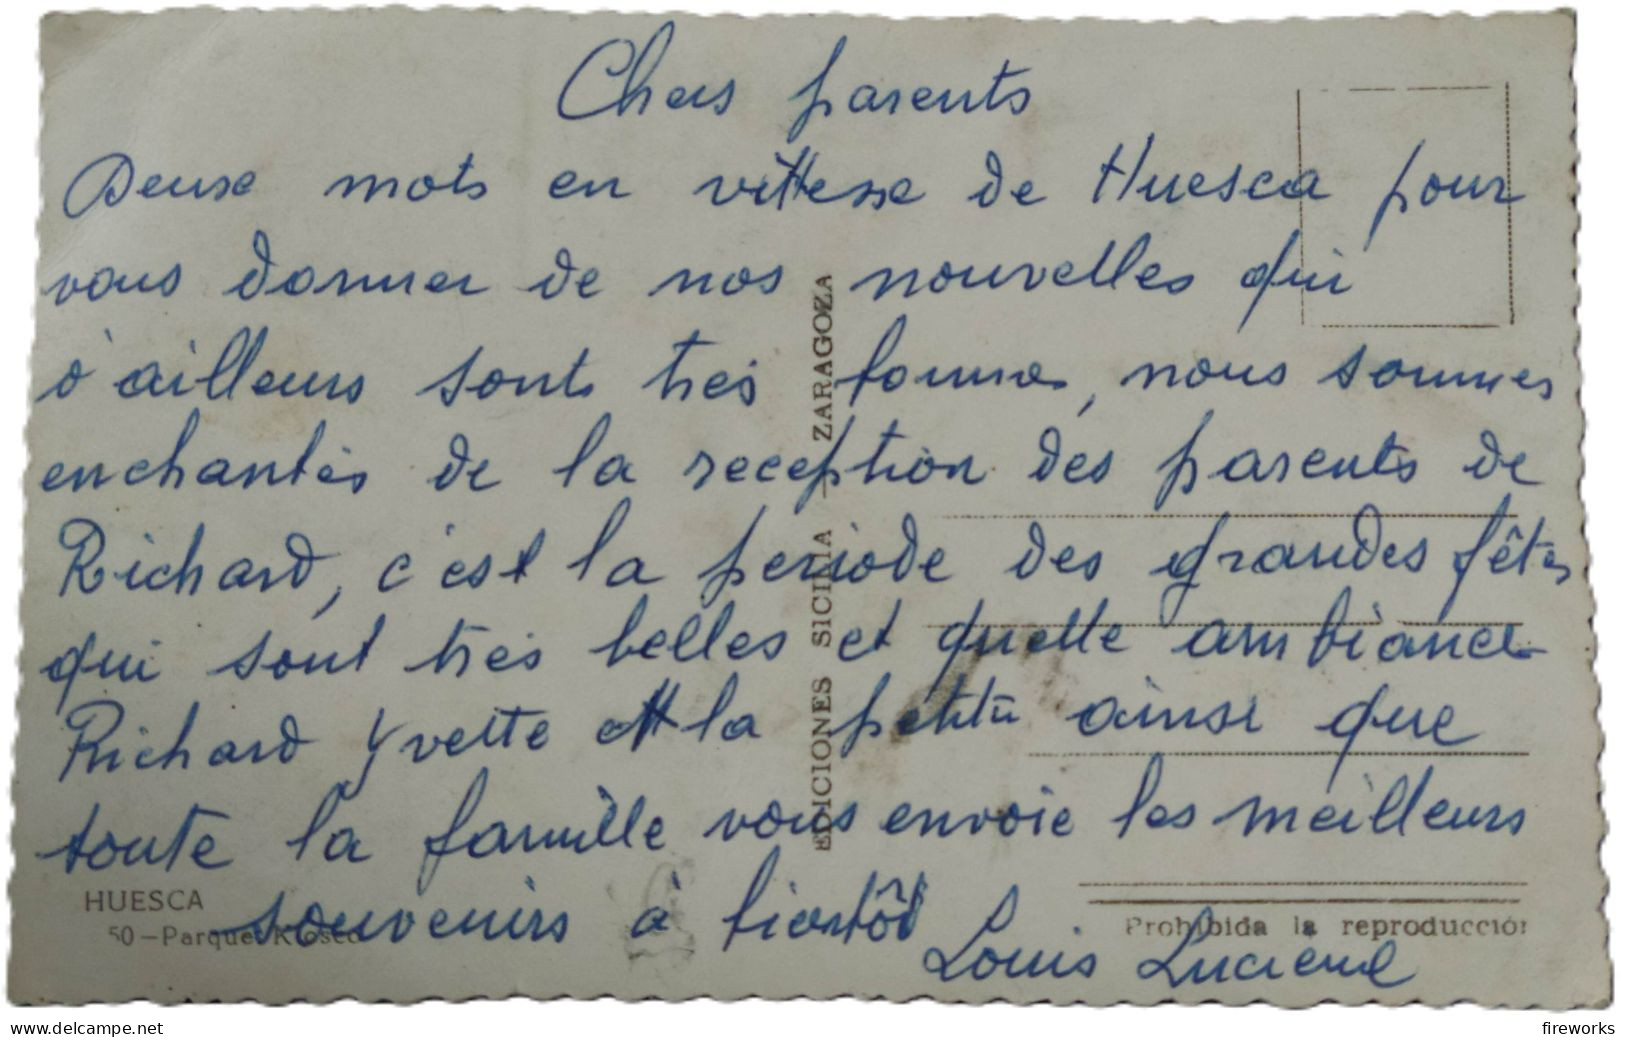 Chers parents
Deuxe mots en vittesse de Huesca pour
vous donner de nos nouvelles qui
d'ailleurs sont très bonnes, nous sommes
enchantés de la reception des parents de
Richard, c'est la periode des grandes fêtes
qui sont très belles et quelle ambiance
Richard Yvette et la petite ainsi que
toute la famille vous envoie les meilleurs
souvenirs à bientôt
Louis Lucienne
EDICIONES SICILIA - ZARAGOZA
HUESCA
50-Parque. Kiosco
Prohibida la reproducción
www.delcampe.net
fireworks